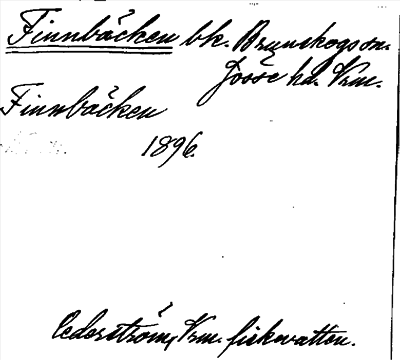 Finnbäcken bk. Brunskogs sn.
Jösse hd. Vrm.
Finnbäcken
1896.
Cederström, Vrm. fiskevatten.